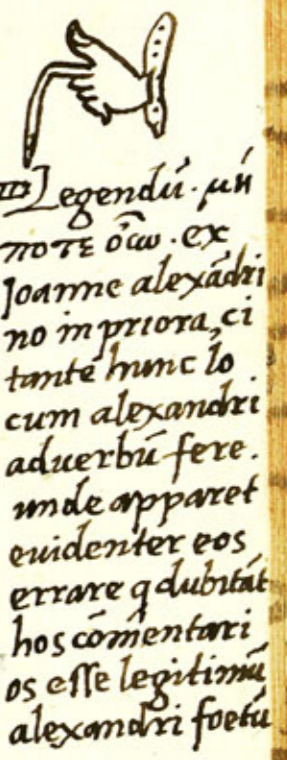 Legendū. μή
ποτε ὅσω. ex
Joanne alexādri
no in priora, ci
tante hunc lo
cum alexandri
aduerbū fere.
unde apparet
euidenter eos
errare q dubitāt
hos cōmentari
os esse legitimū
alexandri foetū